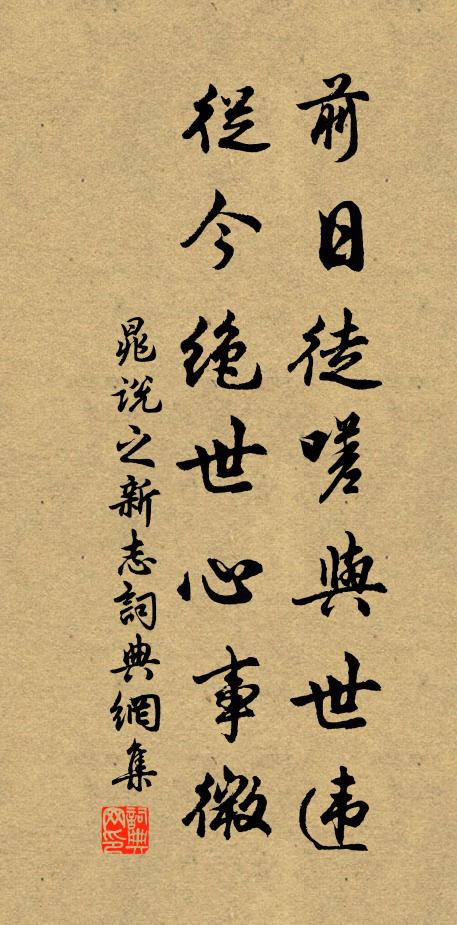 前日徒嗟與世違
從今絶世心事微
晁說之新志詞典網集
詞典網印